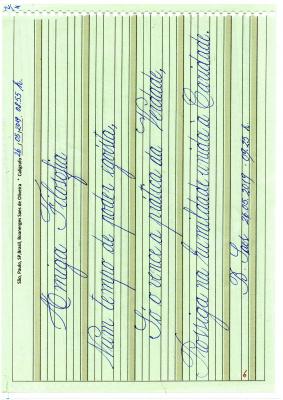 São, Paulo, SP, Brasil, Buanerges Saes de Oliveira * Caligrafo 26/05/2019 08:55 h.
Amiga Filosofia
Num tempo de poder egoísta,
Só o vence a prática da Verdade,
Prossiga na humildade unida à Caridade.
B. Saes 26.05.2019 - 09:25 h.
6.